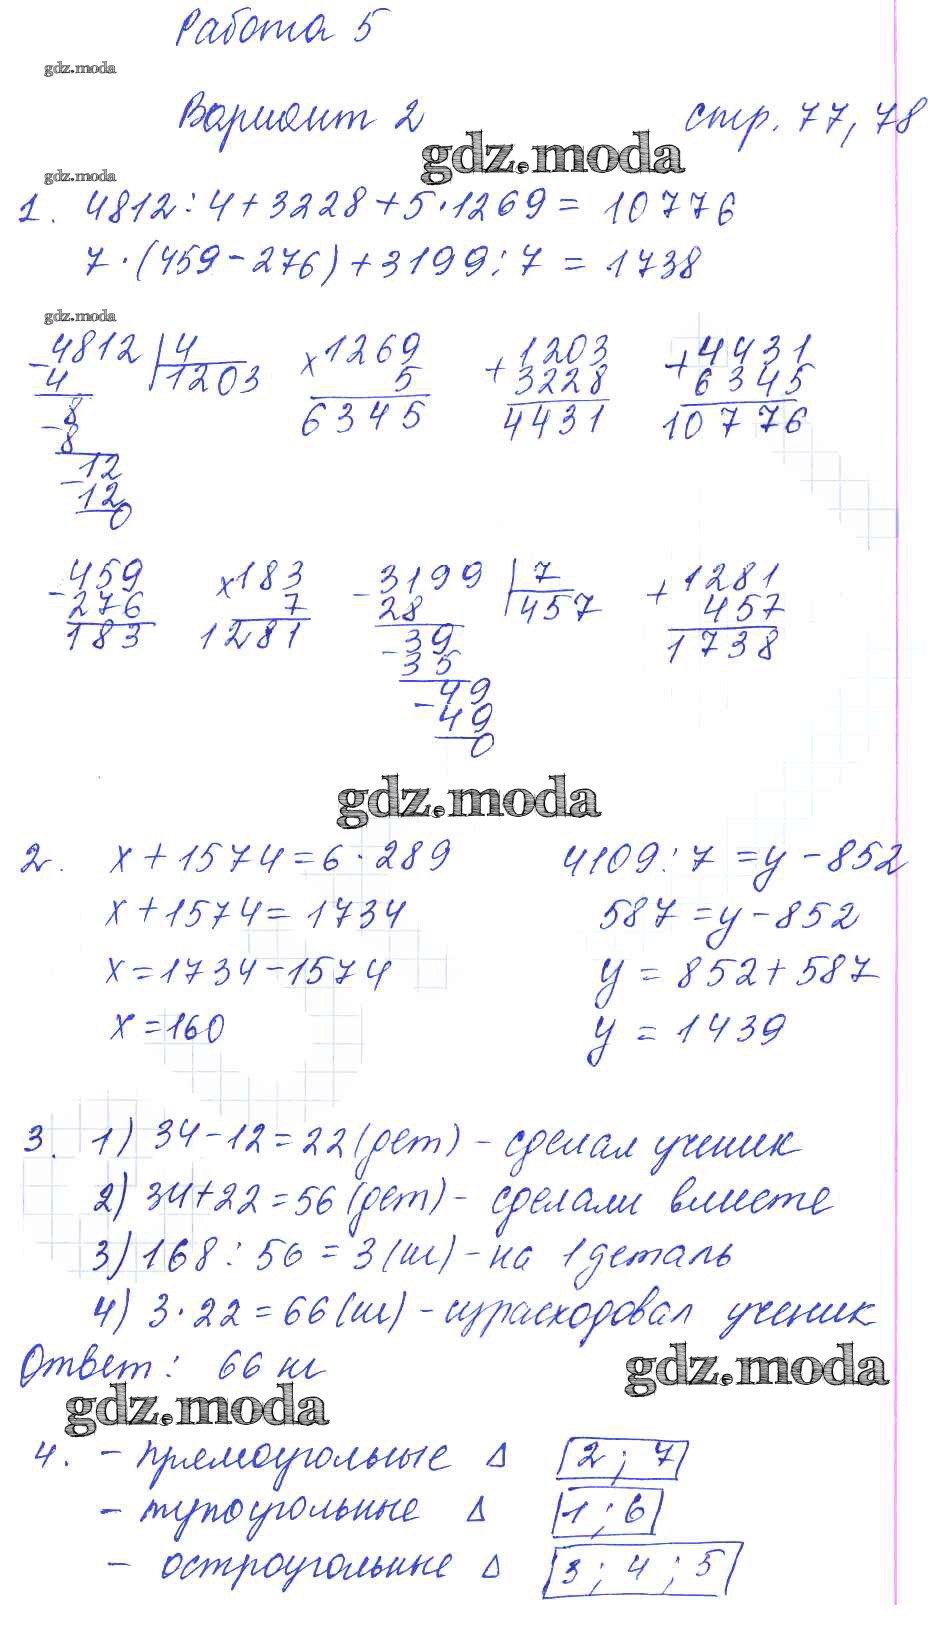 Работа 5
gdz.moda
Вариант 2 стр. 77, 78
gdz.moda
gdz.moda
1. 4812 : 4 + 3228 + 5 · 1269 = 10776
7 · (459 - 276) + 3199 : 7 = 1738
gdz.moda
- 4812 | 4 × 1269 + 1203 + 4431
4 1203 5 3228 6345
- 8 6345 4431 10776
8
- 12
12
0
- 459 × 183 - 3199 | 7 + 1281
276 7 28 457 457
183 1281 - 39 1738
35
- 49
49
0
gdz.moda
2. x + 1574 = 6 · 289 4109 : 7 = y - 852
x + 1574 = 1734 587 = y - 852
x = 1734 - 1574 y = 852 + 587
x = 160 y = 1439
3. 1) 34 - 12 = 22 (дет) - сделал ученик
2) 34 + 22 = 56 (дет) - сделали вместе
3) 168 : 56 = 3 (кг) - на 1 деталь
4) 3 · 22 = 66 (кг) - израсходовал ученик
Ответ: 66 кг
gdz.moda
gdz.moda
4. - прямоугольные Δ 2; 7
- тупоугольные Δ 1; 6
- остроугольные Δ 3; 4; 5